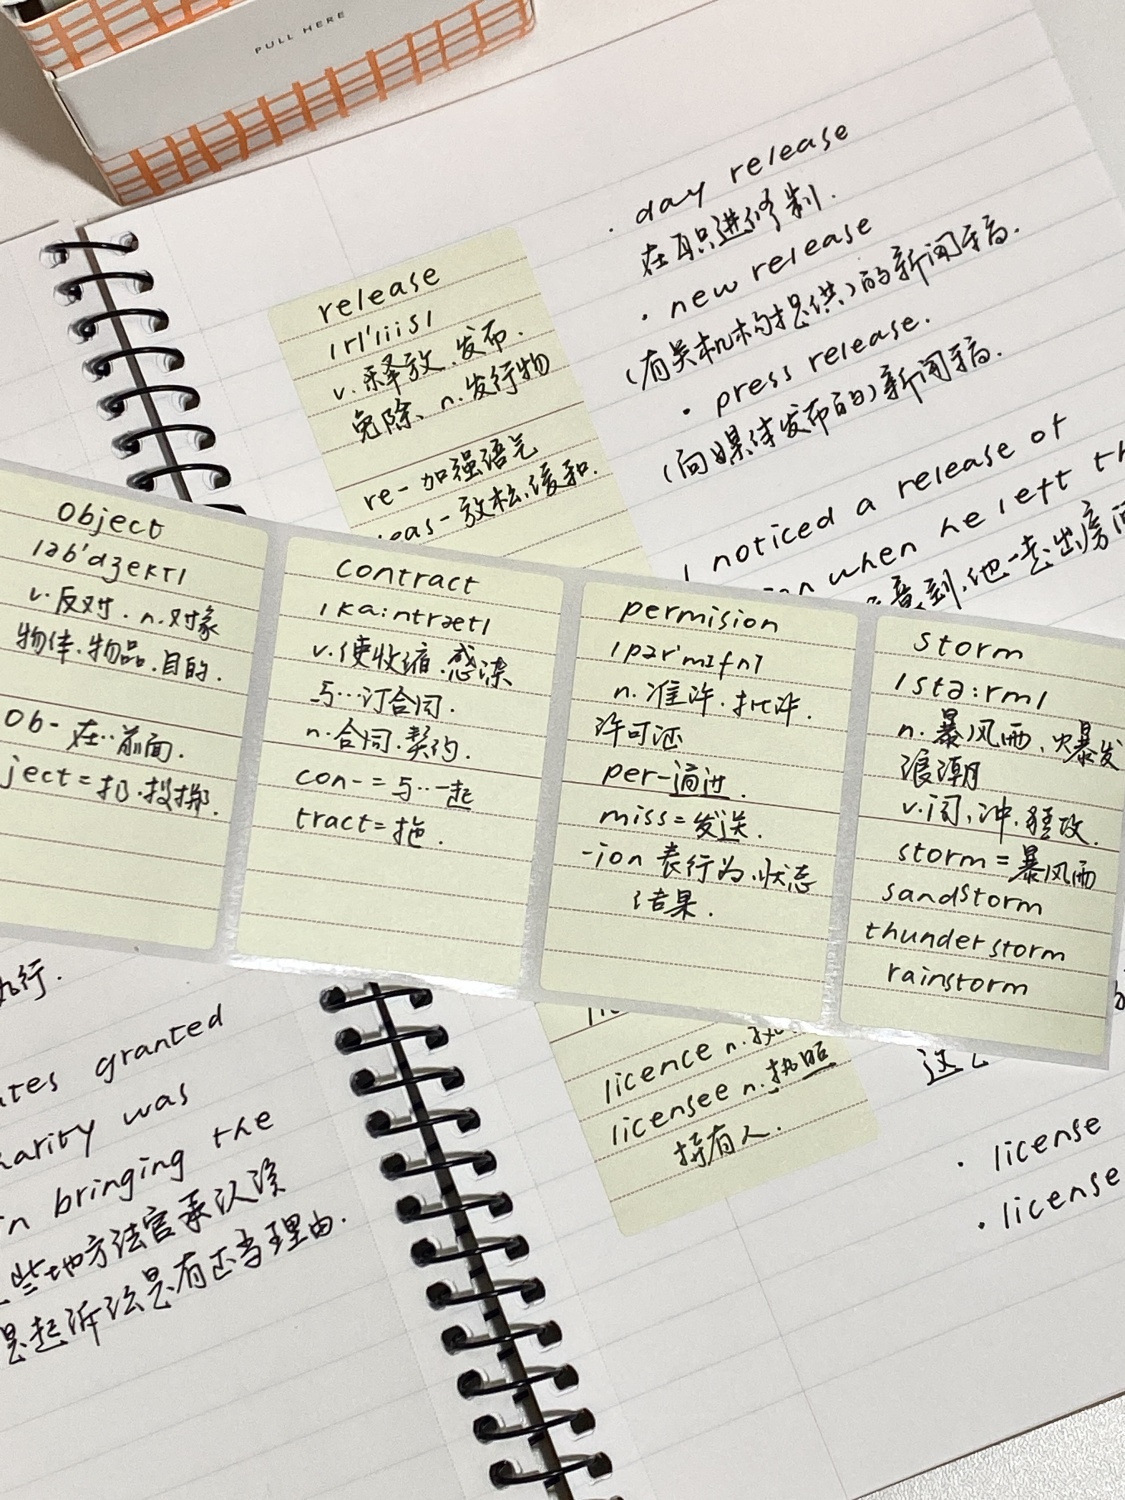 PULL HERE
· day release
在职进修制.
· new release
(有关机构提供)的新闻稿.
· press release.
(向媒体发布的)新闻稿.
I noticed a release of
when he left th
意到,他一走出房间
release
v.释放、发布.
免除、n.发行物
re-加强语气
eas-放松,缓和.
object
v.反对.n.对象
物体.物品.目的.
ob-在..前面.
ject=扔.投掷.
contract
/ka:ntrækt/
v.使收缩.感染
与…订合同.
n.合同.契约.
con-=与..一起
tract=拖.
permision
n.准许.批准.
许可证
per-通过.
miss=发送.
-ion 表行为.状态
结果.
storm
n.暴风雨、爆发
浪潮
v.闯、冲.猛攻.
storm=暴风雨
sandstorm
thunderstorm
rainstorm
licence n.执
licensee n.执照
持有人.
这么
· license
· license
执行.
ates granted
harity was
in bringing the
些地方法官承认该
是起诉讼是有正当理由.